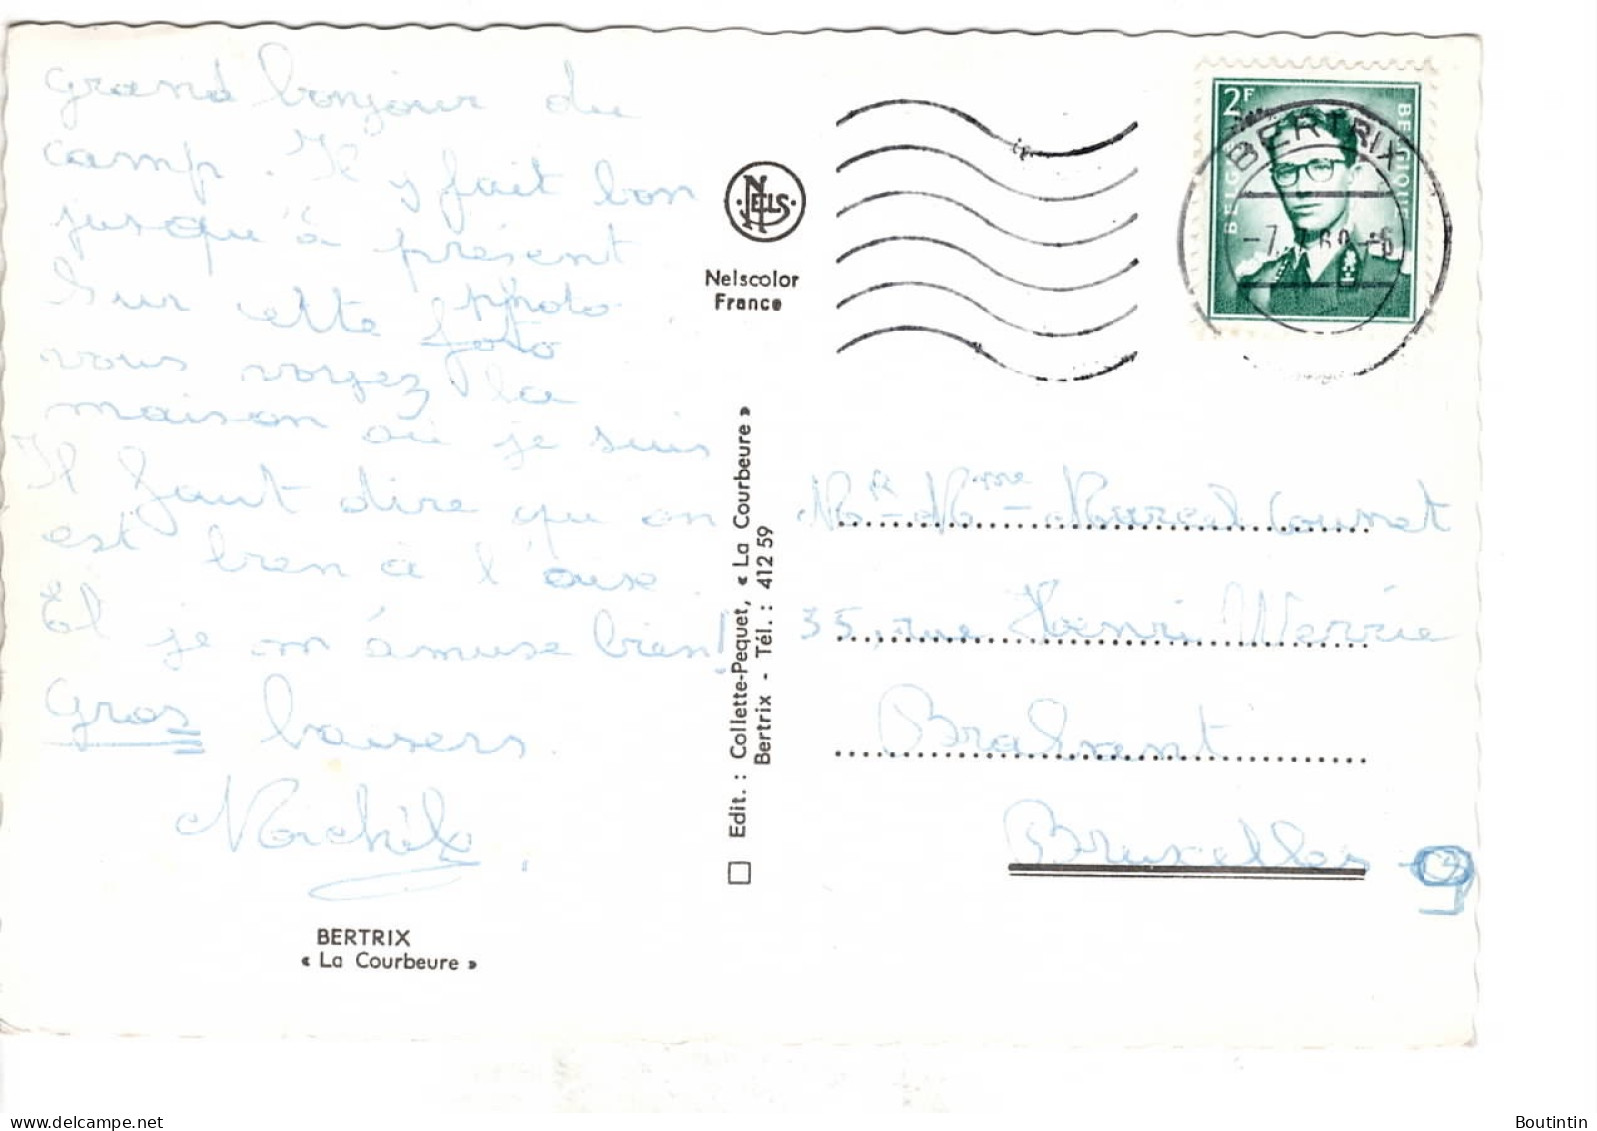 grand bonjour du
camp. Il y fait bon
jusqu'à présent
Sur cette foto photo
vous voyez la
maison où je suis
Il faut dire qu on
est bien à l'aise.
Et je m'amuse bien!
Gros baisers.
Michèle
BERTRIX
« La Courbeure »
NELS
Nelscolor
France
Edit. : Collette-Pequet, « La Courbeure »
Bertrix - Tél. : 412 59
2F
BELGIE
BELGIQUE
BERTRIX
Mr - Mme - Marcel
35, rue Henri Werrie
Brabant
Bruxelles 9
www.delcampe.net
Boutintin